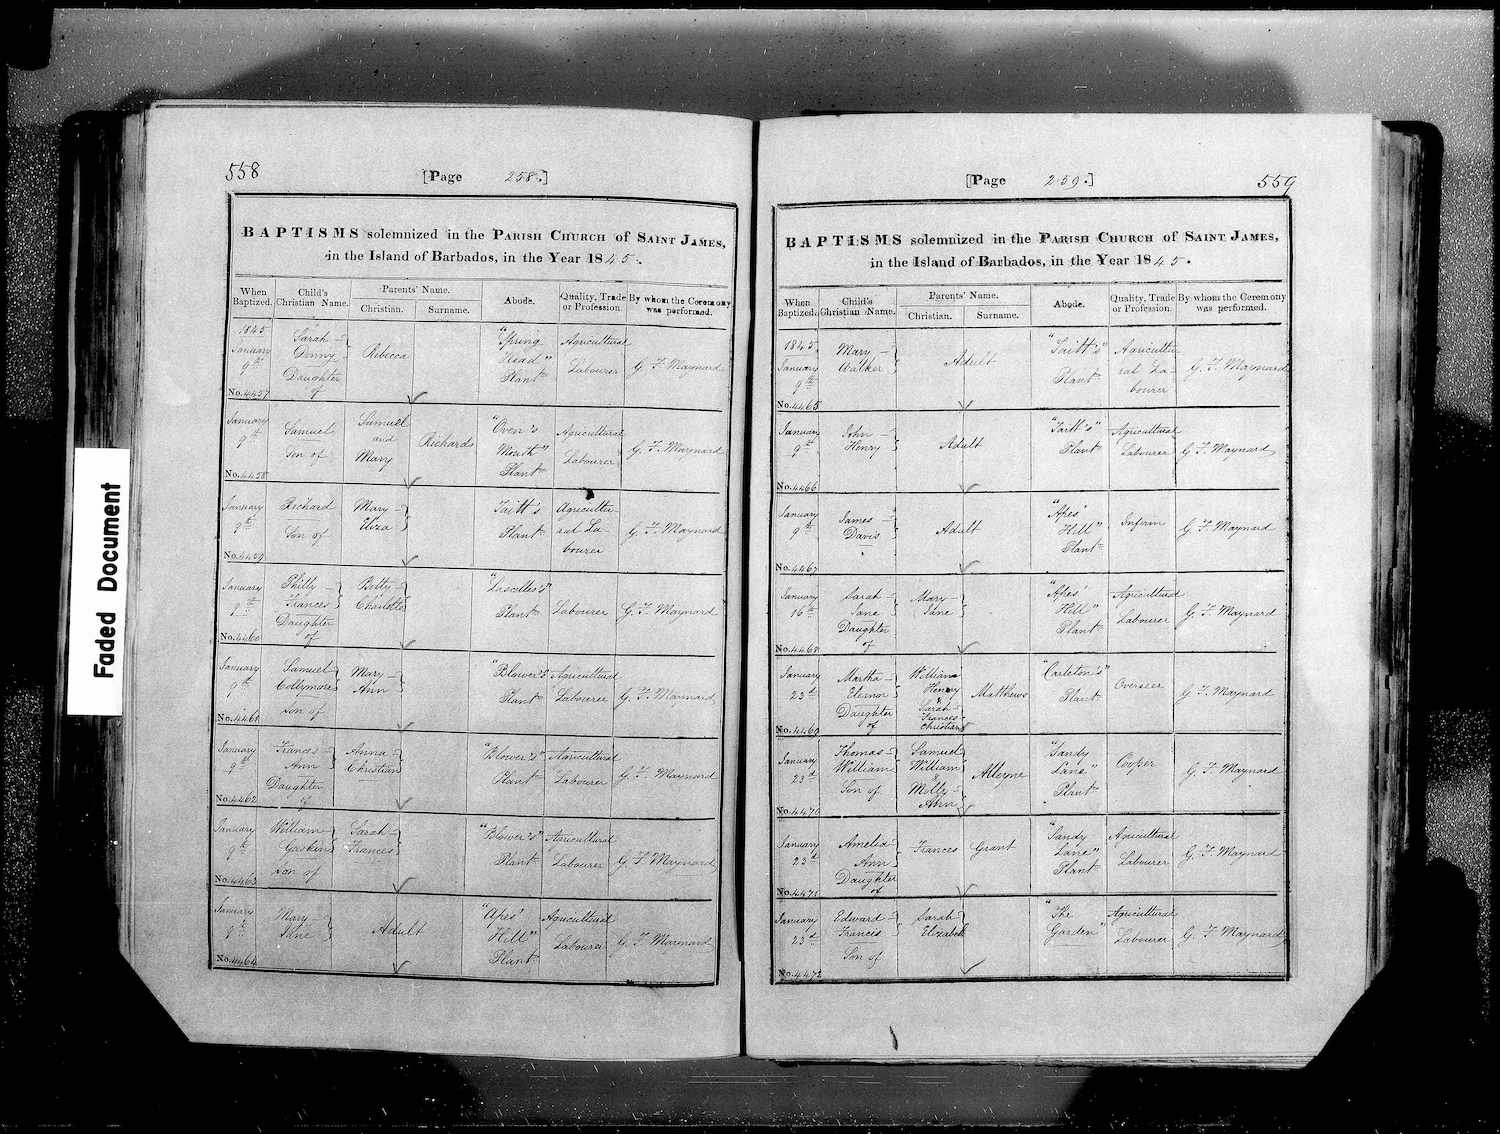 558
[Page 258.]
BAPTISMS solemnized in the PARISH CHURCH of SAINT JAMES,
in the Island of Barbados, in the Year 1845.
When Baptized. Child's Christian Name. Parents' Name. Christian. Surname. Abode. Quality, Trade or Profession. By whom the Ceremony was performed.
1845 Sarah- "Spring Agricultural
January Denny Rebecca Head" Labourer G. F. Maynard
9th Daughter Plantn
No. 4457 of
January Samuel Samuel "Oven's Agricultural
9th Son of and Richards Mouth" Labourer G. F. Maynard
No. 4458 Mary Plantn
January Richard Mary- Taitt's Agricultu-
9th Son of Eliza Plantn ral La- G. F. Maynard
No. 4459 bourer
January Philly- Betty- "Lascelles's"
9th Frances Charlotte Plantn Labourer G. F. Maynard
Daughter
No. 4460 of
January Samuel Mary- "Blower's" Agricultural
9th Collymore Ann Plantn Labourer G. F. Maynard
No. 4461 Son of
January Frances- Anna- "Blower's" Agricultural
9th Ann Christian Plantn Labourer G. F. Maynard
Daughter
No. 4462 of
January William- Sarah- "Blower's" Agricultural
9th Gaskin Frances Plantn Labourer G. F. Maynard
No. 4463 Son of
January Mary- "Apes' Agricultural
9th Jane Adult Hill" Labourer G. F. Maynard
No. 4464 Plantn
[Page 259.]
559
BAPTISMS solemnized in the PARISH CHURCH of SAINT JAMES,
in the Island of Barbados, in the Year 1845.
When Baptized. Child's Christian Name. Parents' Name. Christian. Surname. Abode. Quality, Trade or Profession. By whom the Ceremony was performed.
1845 Mary- "Taitt's" Agricultu-
January Walker Adult Plantn ral La- G. F. Maynard
9th bourer
No. 4465
January John- "Taitt's" Agricultural
9th Henry Adult Plantn Labourer G. F. Maynard
No. 4466
January James- "Apes' Infirm
9th Davis Adult Hill" G. F. Maynard
No. 4467 Plantn
January Sarah- Mary- "Apes' Agricultural
16th Jane Jane Hill" Labourer G. F. Maynard
Daughter Plantn
No. 4468 of
January Martha- William "Carleton's"
23d Elenor Henry Matthews Plantn Overseer G. F. Maynard
Daughter & Sarah-
of Frances-
No. 4469 Christian
January Thomas- Samuel "Sandy
23d William William Alleyne Lane" Cooper G. F. Maynard
Son of & Molly- Plantn
No. 4470 Ann
January Amelia- Frances Grant "Sandy Agricultural
23d Ann Lane" Labourer G. F. Maynard
Daughter Plantn
No. 4471 of
January Edward- Sarah- "The Agricultural
23d Francis Elizabeth Garden" Labourer G. F. Maynard
Son of
No. 4472
Faded Document